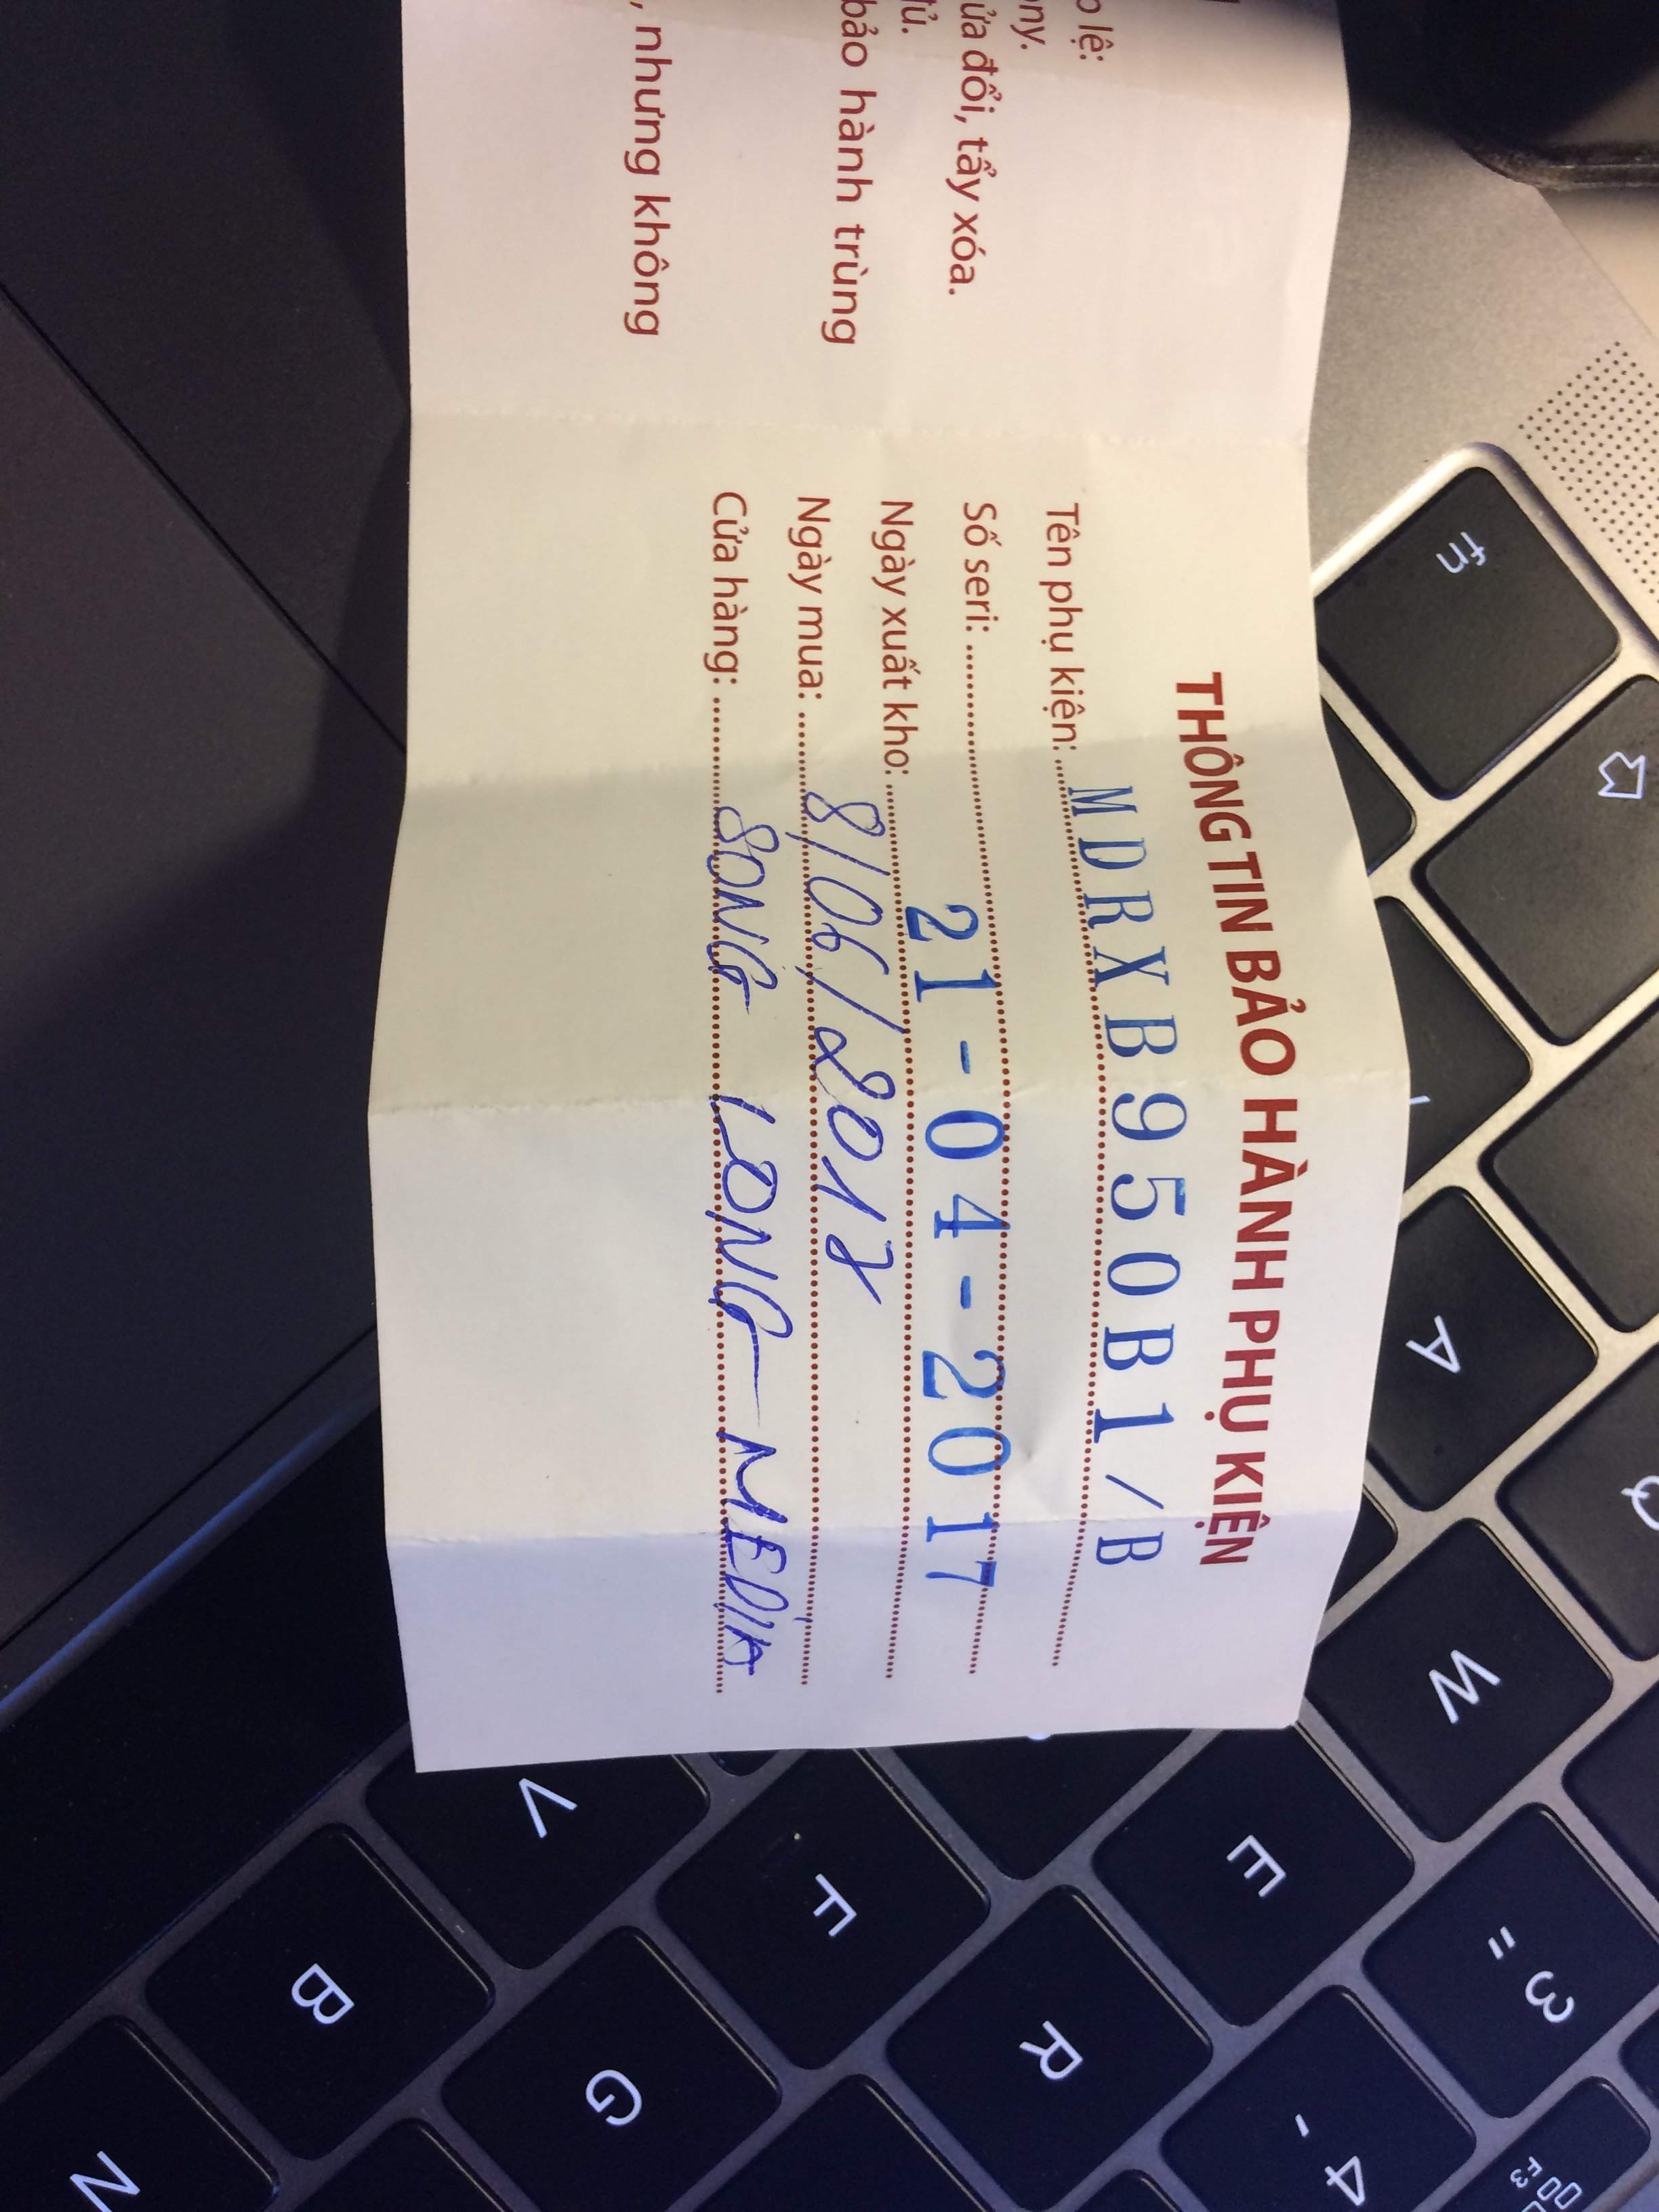 o lệ:
ny.
ửa đổi, tẩy xóa.
đủ.
bảo hành trùng
, nhưng không
THÔNG TIN BẢO HÀNH PHỤ KIỆN
Tên phụ kiện: MDRXB950B1/B
Số seri:
Ngày xuất kho: 21-04-2017
Ngày mua: 8/06/2017
Cửa hàng: SONG LONG - MEDIA
fn
A
Q
W
V
F
E
" 3
B
G
R
' 4
F3
N